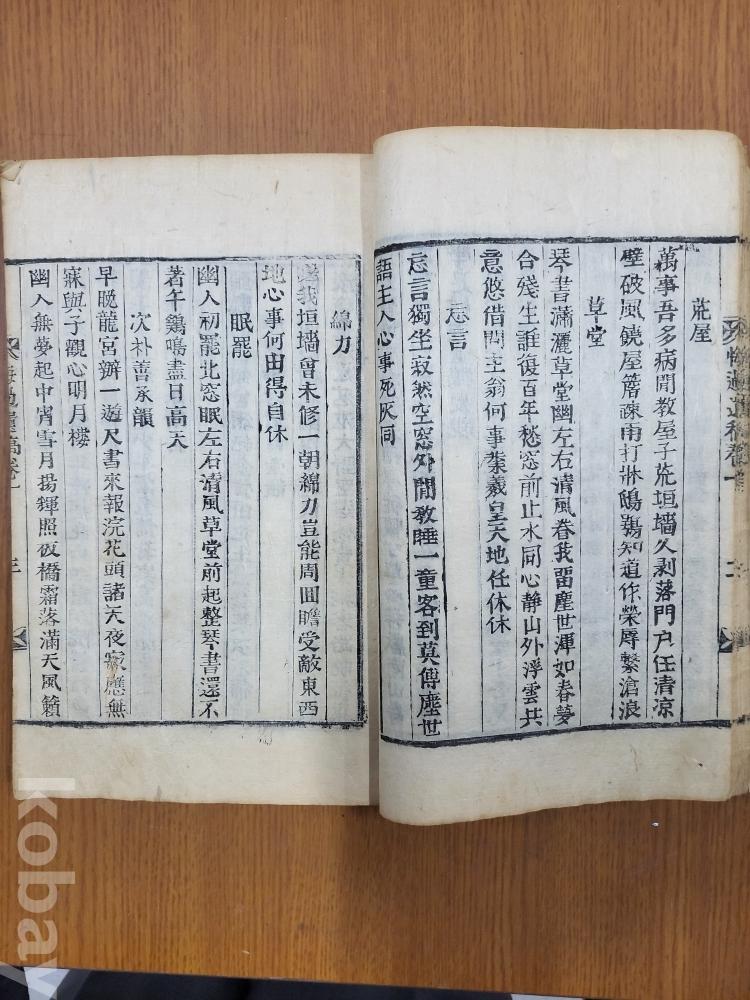 荒屋
萬事吾多病閒敎屋子荒垣墻久剥落門戶任清凉
壁破風饒屋簷疎雨打牀鴟鶚知道作榮辱繫滄浪
草堂
琴書瀟灑草堂幽左右清風眷我留塵世渾如春夢
合殘生誰復百年愁窓前止水同心靜山外浮雲共
意悠借問主翁何事業羲皇天地任休休
忘言
忘言獨坐寂然空窓外閒敎睡一童客到莫傳塵世
語主人心事死灰同
綿力
我垣墻曾未修一朝綿力豈能周圓瞻受敵東西
地心事何由得自休
眠罷
幽人初罷北窓眠左右清風草堂前起整琴書還不
著午鷄鳴盡日高天
次朴善永韻
早晩龍宮辦一遊尺書來報浣花頭諸天夜寂應無
寐與子觀心明月樓
幽人無夢起中宵雪月揚輝照夜橋霜落滿天風籟
遺稿卷一 三
kobay